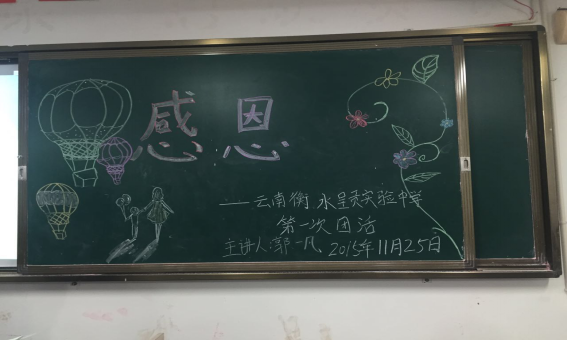 感恩
——云南衡水呈贡实验中学
第一次团活
主讲人:郭一凡、2015年11月25日